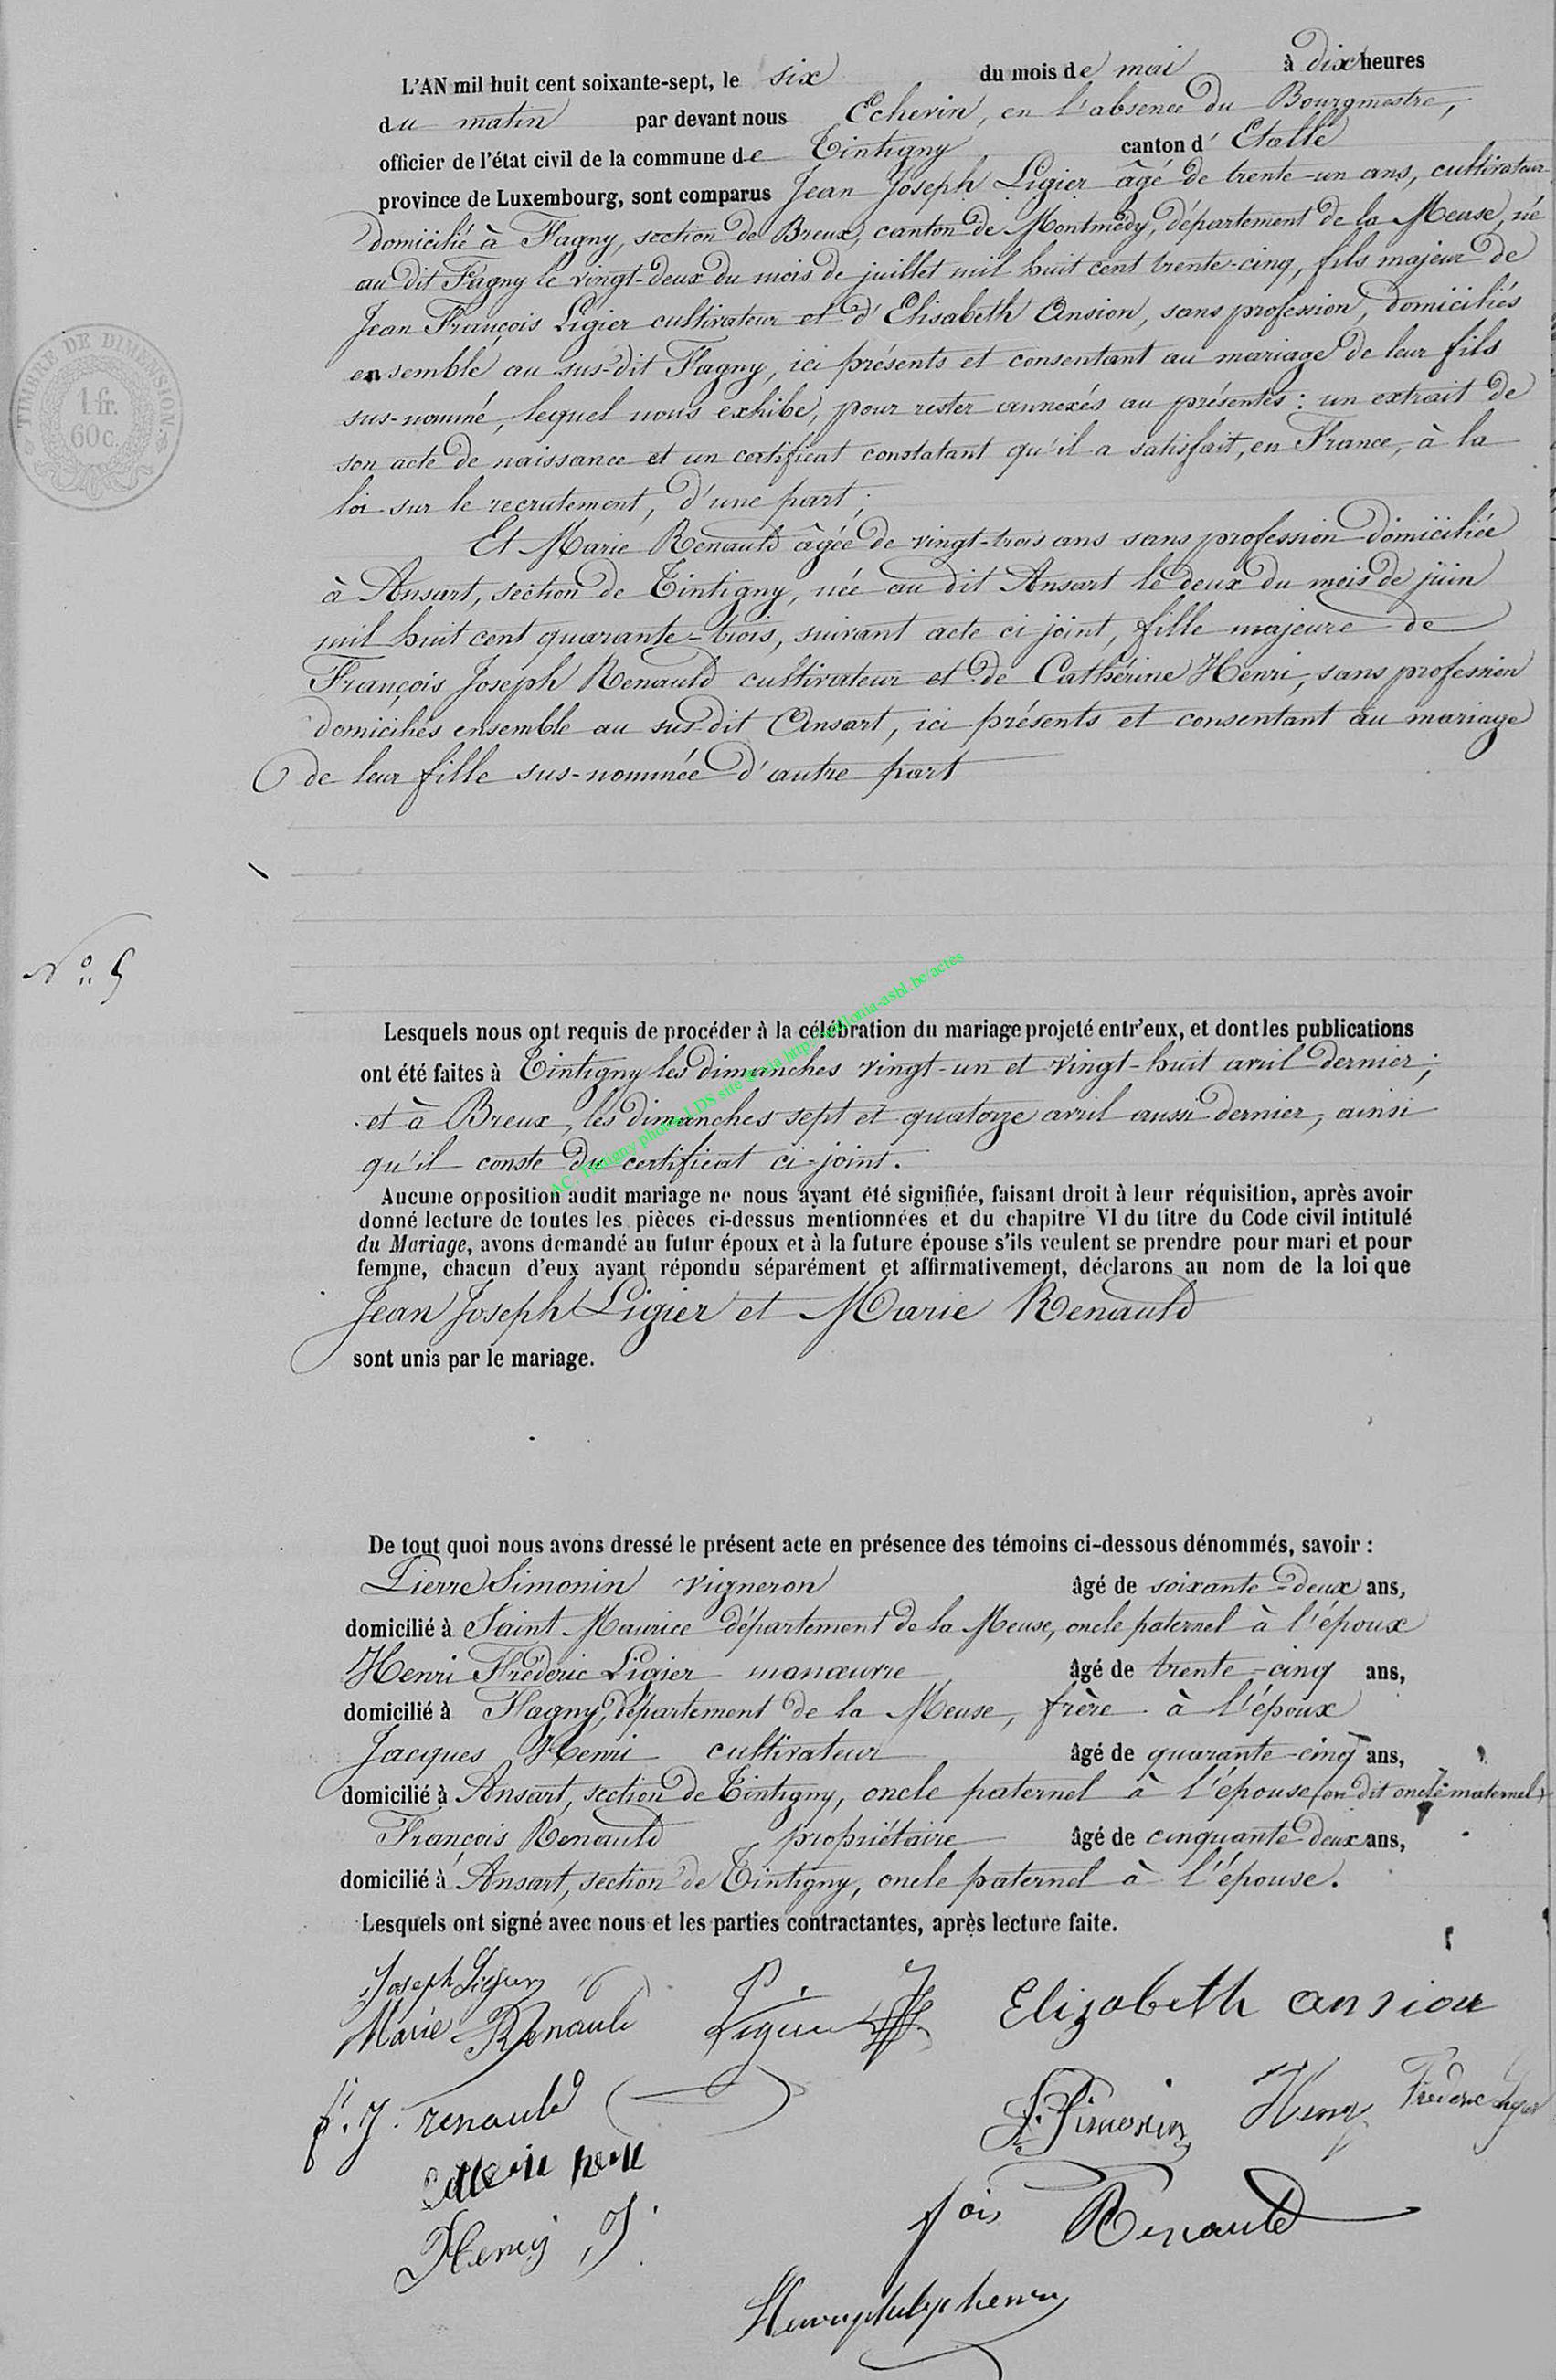 L'AN mil huit cent soixante-sept, le six du mois de mai à dix heures
du matin par devant nous Echevin, en l'absence du Bourgmestre,
officier de l'état civil de la commune de Tintigny canton d' Etalle
province de Luxembourg, sont comparus Jean Joseph Ligier âgé de trente-un ans, cultivateur
domicilié à Fagny, section de Breux, canton de Montmédy, département de la Meuse, né
au dit Fagny le vingt-deux du mois de juillet mil huit cent trente-cinq, fils majeur de
Jean François Ligier cultivateur et d'Elisabeth Ansion, sans profession, domiciliés
ensemble au sus-dit Fagny, ici présents et consentant au mariage de leur fils
sus-nommé, lequel nous exhibe, pour rester annexés au présentes : un extrait de
son acte de naissance et un certificat constatant qu'il a satisfait, en France, à la
loi sur le recrutement, d'une part ;
TIMBRE DE DIMENSION
1 fr.
60 c.
Et Marie Renauld âgée de vingt-trois ans sans profession domiciliée
à Ansart, section de Tintigny, née au dit Ansart le deux du mois de juin
mil huit cent quarante-trois, suivant acte ci-joint, fille majeure de
François Joseph Renauld cultivateur et de Cathérine Henri, sans profession
domiciliés ensemble au sus-dit Ansart, ici présents et consentant au mariage
de leur fille sus-nommée d'autre part
N° 5
Lesquels nous ont requis de procéder à la célébration du mariage projeté entr'eux, et dont les publications
ont été faites à Tintigny les dimanches vingt-un et vingt-huit avril dernier ;
et à Breux, les dimanches sept et quatorze avril aussi dernier, ainsi
qu'il conste du certificat ci-joint.
AC. Tintigny photos LDS site via http://wallonia-asbl.be/actes
Aucune opposition audit mariage ne nous ayant été signifiée, faisant droit à leur réquisition, après avoir
donné lecture de toutes les pièces ci-dessus mentionnées et du chapitre VI du titre du Code civil intitulé
du Mariage, avons demandé au futur époux et à la future épouse s'ils veulent se prendre pour mari et pour
femme, chacun d'eux ayant répondu séparément et affirmativement, déclarons au nom de la loi que
Jean Joseph Ligier et Marie Renauld
sont unis par le mariage.
De tout quoi nous avons dressé le présent acte en présence des témoins ci-dessous dénommés, savoir :
Pierre Simonin vigneron âgé de soixante-deux ans,
domicilié à Saint Maurice département de la Meuse, oncle paternel à l'époux
Henri Fréderic Ligier manœuvre âgé de trente-cinq ans,
domicilié à Flagny, département de la Meuse, frère à l'époux
Jacques Henri cultivateur âgé de quarante-cinq ans,
domicilié à Ansart, section de Tintigny, oncle paternel à l'épouse (on dit oncle maternel)
François Renauld propriétaire âgé de cinquante-deux ans,
domicilié à Ansart, section de Tintigny, oncle paternel à l'épouse.
Lesquels ont signé avec nous et les parties contractantes, après lecture faite.
Joseph Ligier
Marie Renauld Ligier Elizabeth ansion
f. J. renauld P. Simonin Henry Frédéric Ligier
Henry J. fois Renauld